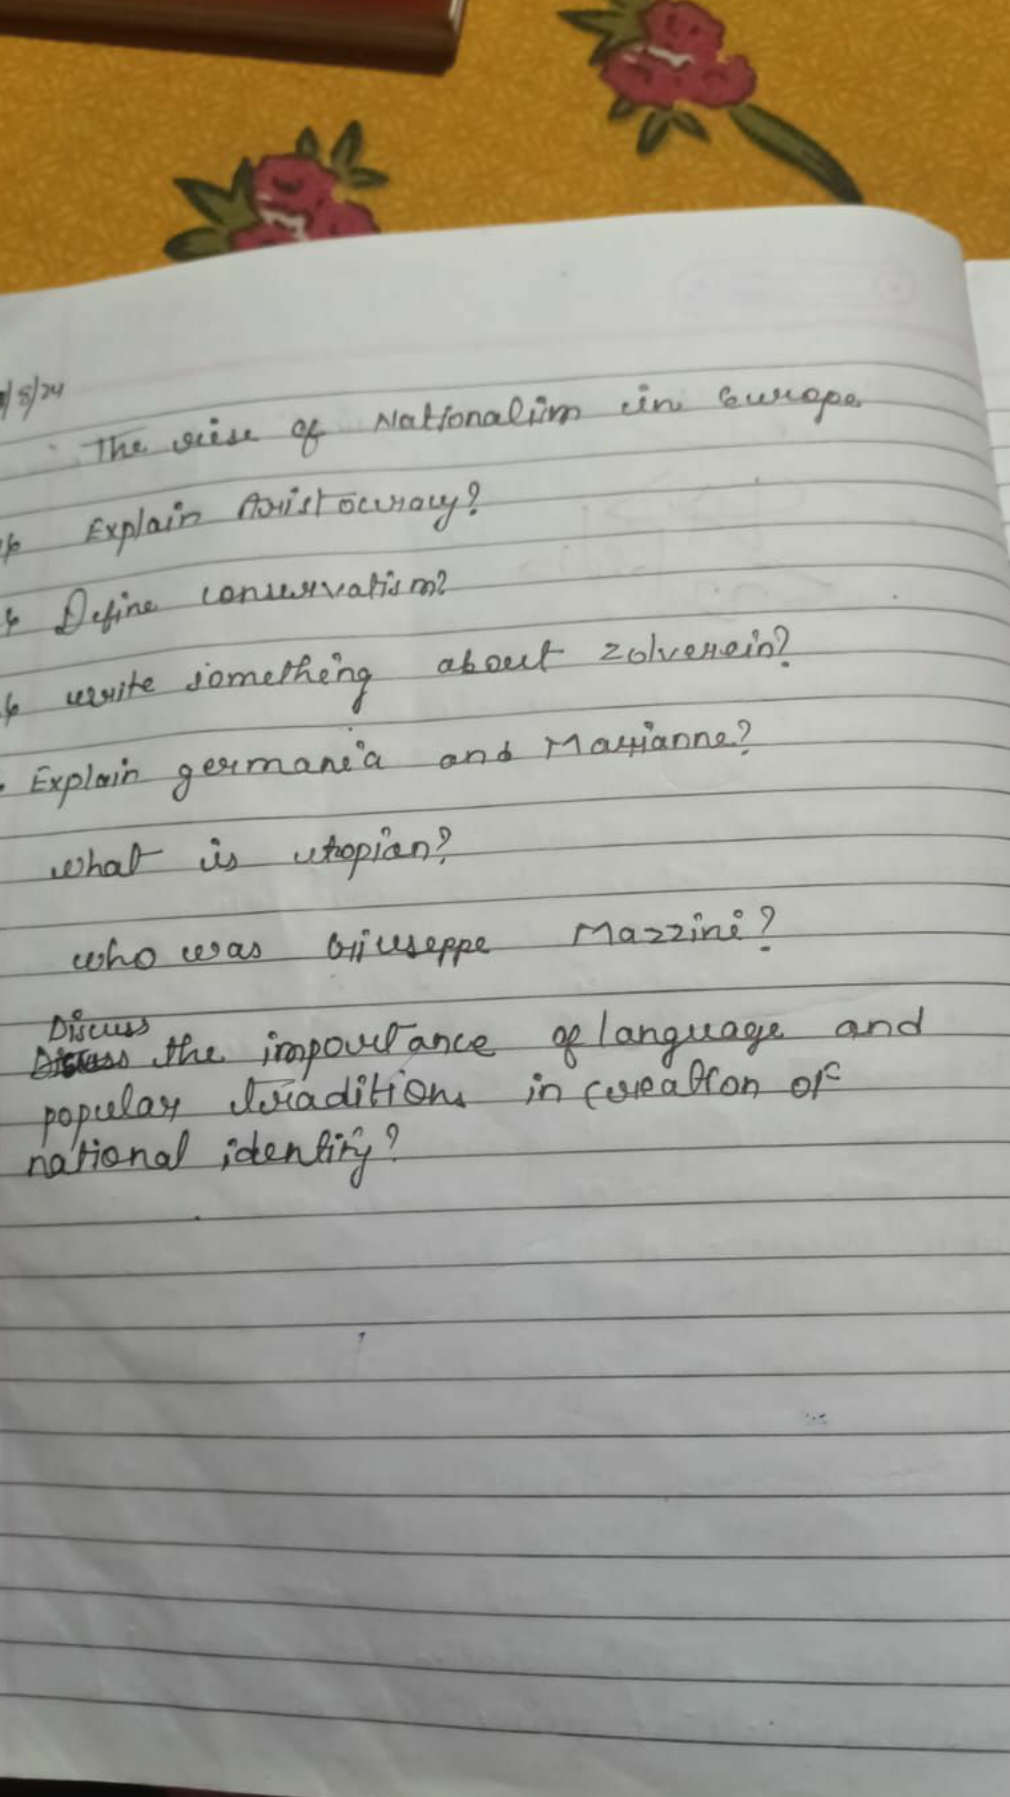 /8/24
The rise of Nationalism in Europe
Explain Aristocracy?
Define conservatism?
write something about zolverein?
Explain germania and Marianne?
what is utopian?
who was Giuseppe Mazzini?
Discuss
the importance of language and
popular traditions in creation of
national identity?